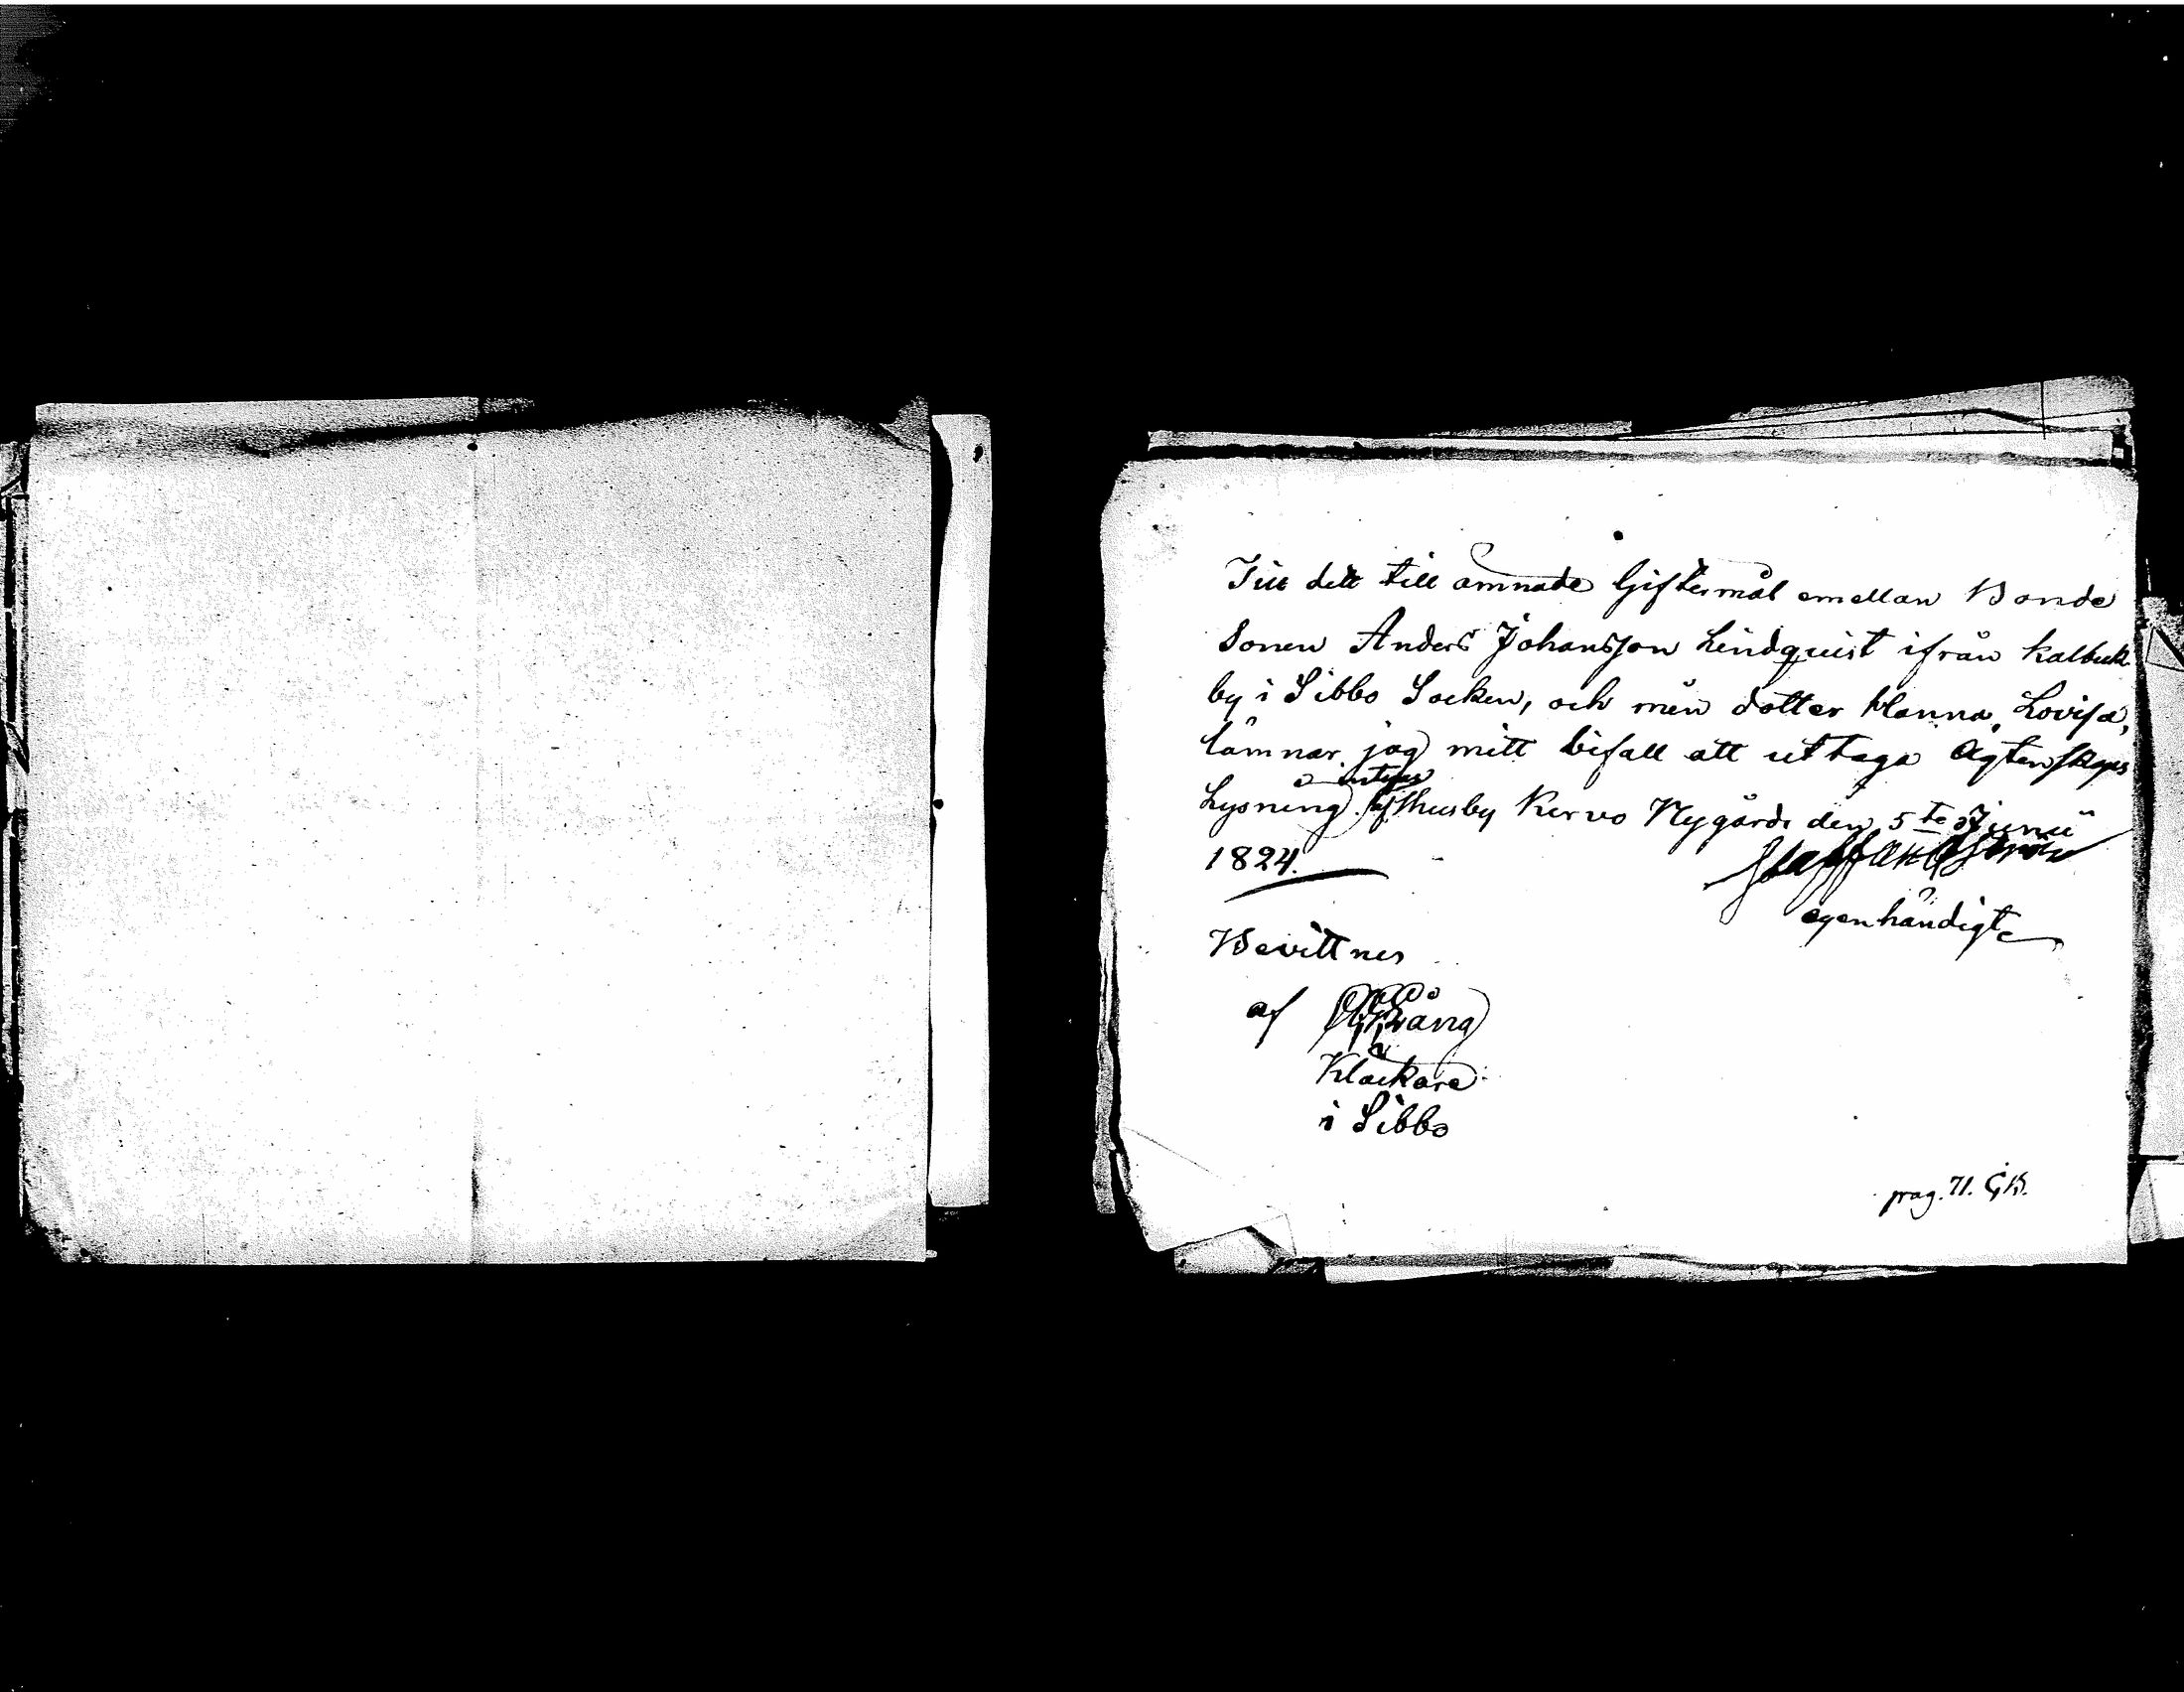 Till dett till ämnade Giftermål emellan Bonde
Sonen Anders Johansson Lindquist ifrån Kalbuck
by i Sibbo Socken, och min dotter Hanna Lovisa,
lämnar jag mitt bifall att uttaga Ägtenskaps
Lysning Husby Kervo Nygårds den 5te Junii
1824.
Staffan
egenhändigt
Bevittnes
af
Klåckare
i Sibbo
pag. 71. G.B.